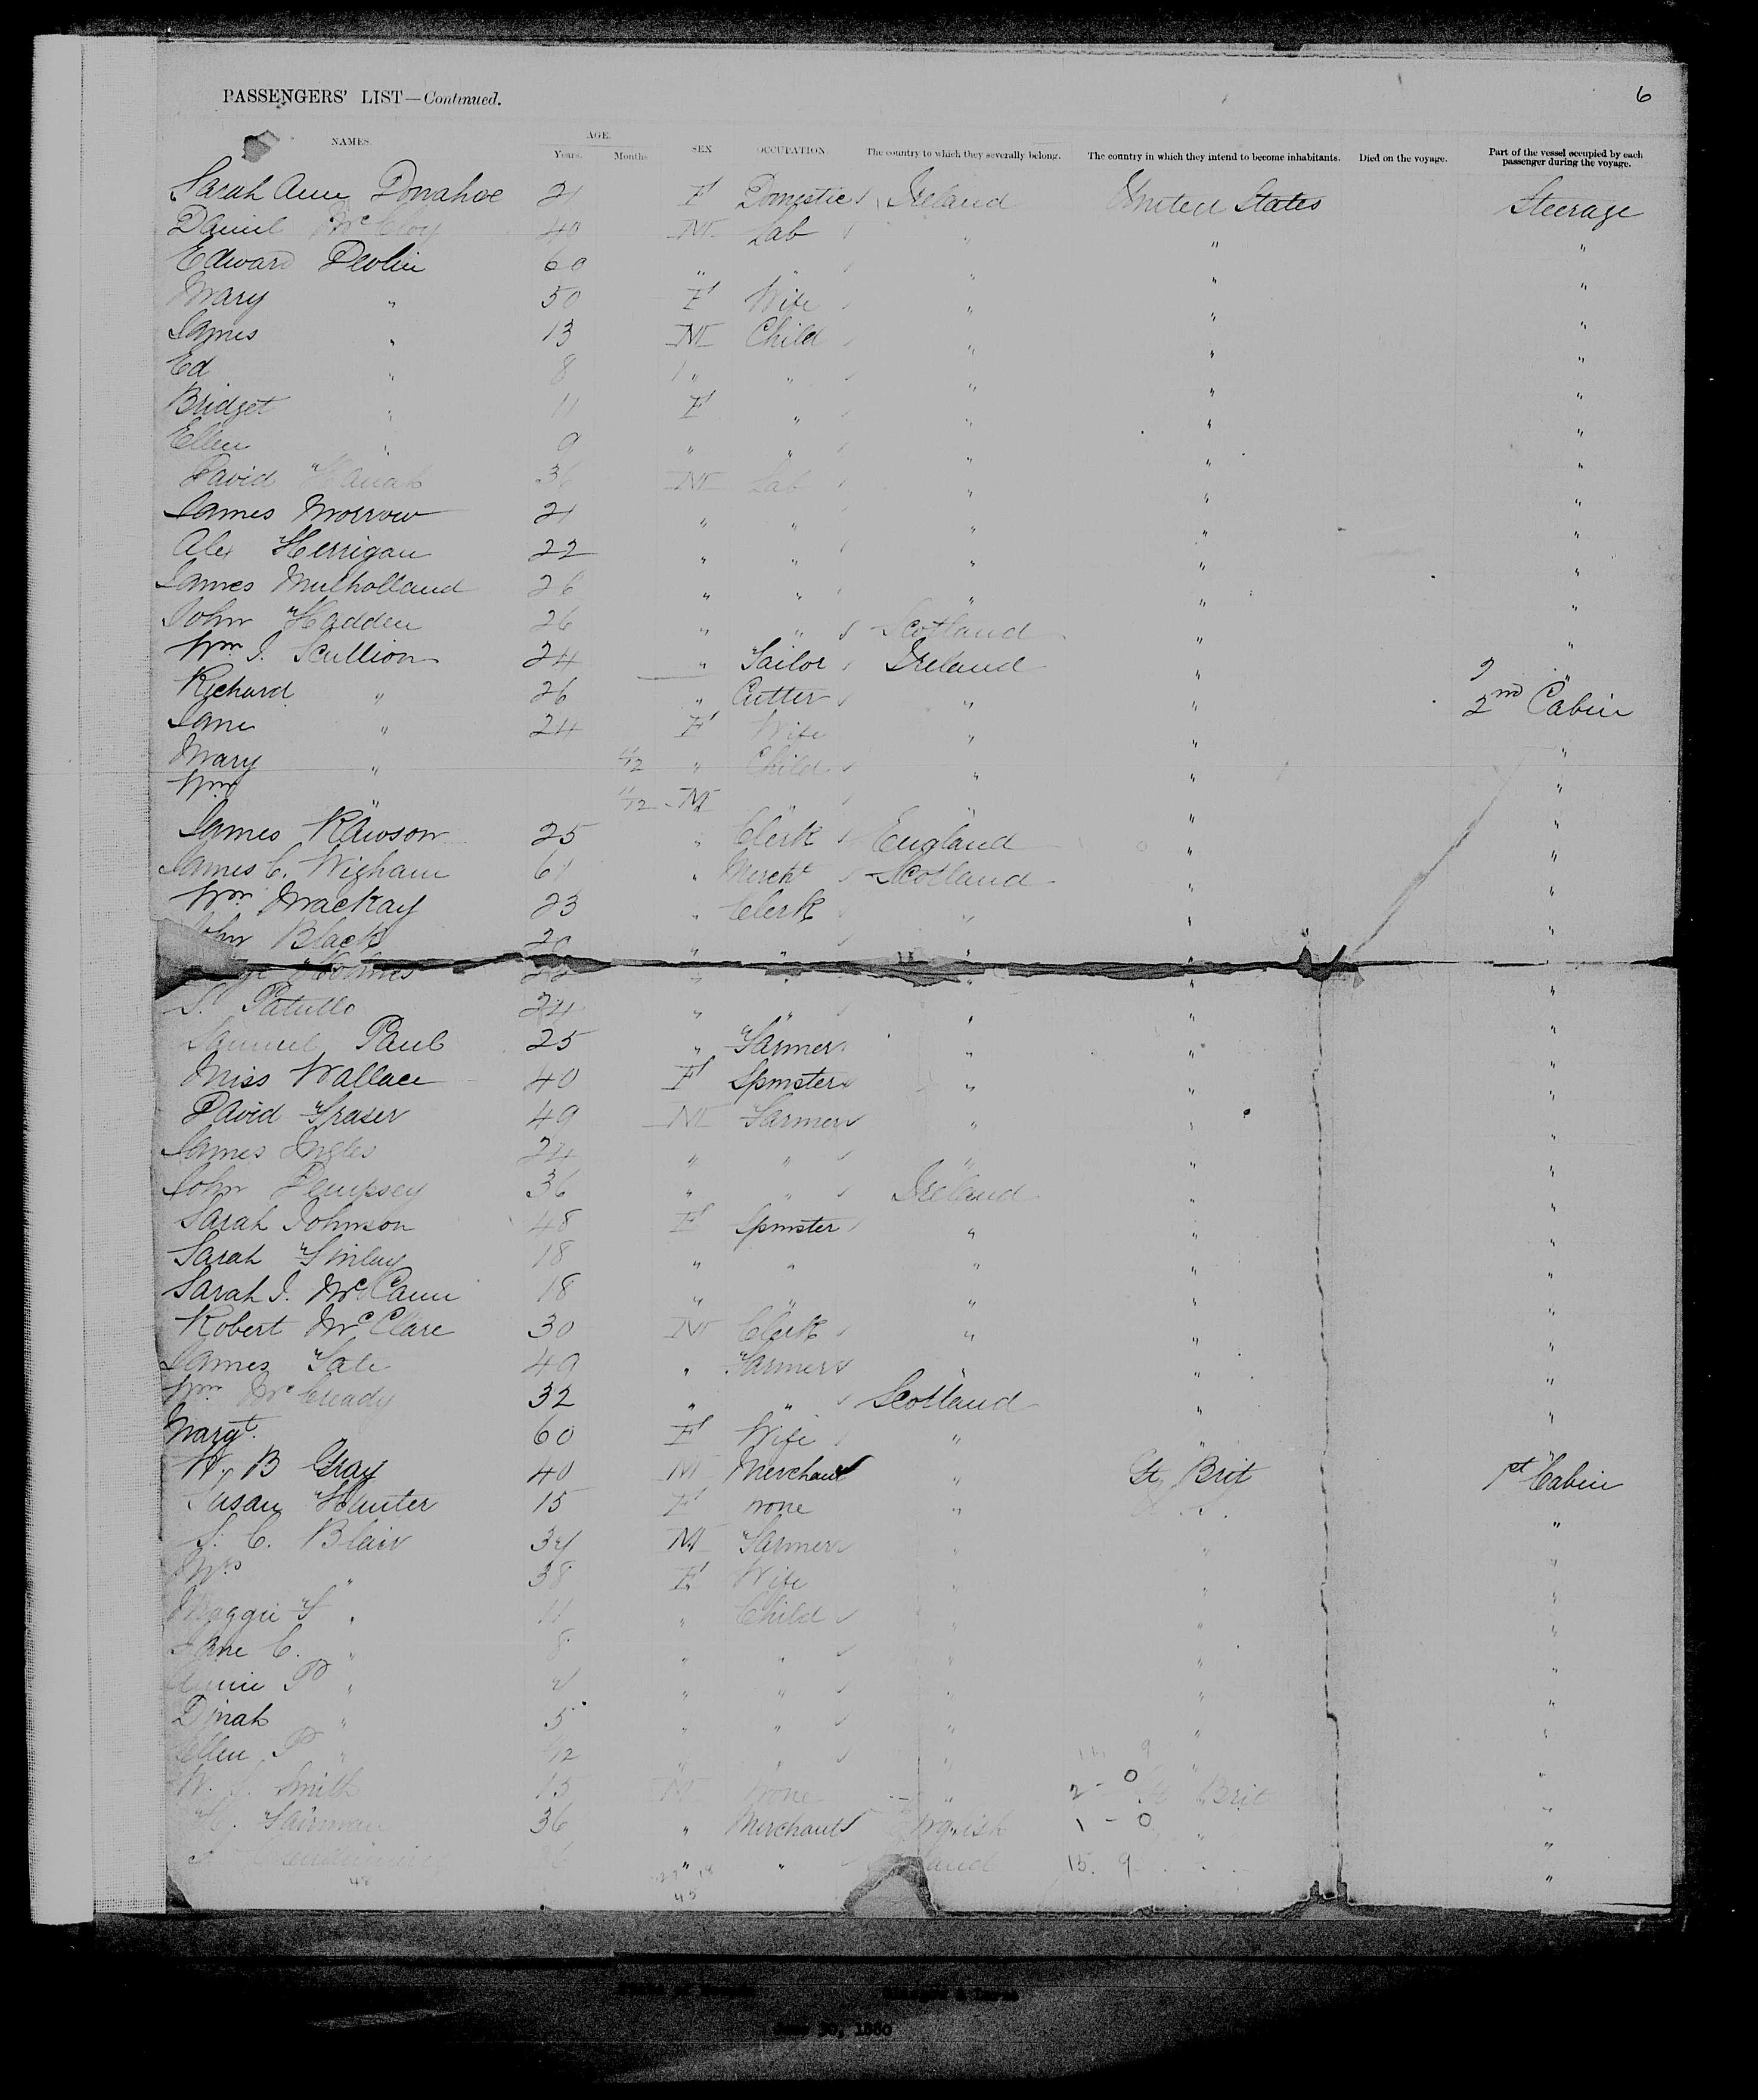 PASSENGERS' LIST—Continued.
6
NAMES. AGE. Years. Months. SEX OCCUPATION The country to which they severally belong. The country in which they intend to become inhabitants. Died on the voyage. Part of the vessel occupied by each passenger during the voyage.
Sarah Ann Donahoe 21 F Domestic Ireland United States Steerage
Daniel McCloy 40 M Lab " " "
Edward Devlin 60 " " " " "
Mary " 50 F Wife " " "
James " 13 M Child " " "
Ed " 8 " " " " "
Bridget " 11 F " " " "
Ellen " 9 " " " " "
David Hanah 36 M Lab " " "
James Morrow 21 " " " " "
Alex Herrigan 22 " " " " "
James Mulholland 26 " " " " "
John Hadden 26 " " Scotland " "
Wm J. Scullion 24 " Tailor Ireland " "
Richard " 26 " Cutter " " 2nd Cabin
Jane " 24 F Wife " " "
Mary " " Child " " "
Wm " 11/12 M " " " "
James Rawson 25 " Clerk England " "
James C. Wigham 61 " Mercht Scotland " "
Wm Mackay 23 " Clerk " " "
John Black " " " " "
Holmes " " " " "
Patullo 24 " " " " "
Samuel Paul 25 " Farmer " " "
Miss Wallace 40 F Spinster " " "
David Fraser 49 M Farmer " " "
James Ingles 24 " " " " "
John Dempsey 36 " " Ireland " "
Sarah Johnson 48 F Spinster " " "
Sarah Finlay 18 " " " " "
Sarah J. McCann 18 " " " " "
Robert McClare 30 M Clerk " " "
James Tate 49 " Farmer " " "
Wm McCready 32 " " Scotland " "
Margt. " 60 F Wife " " "
W. B Gray 40 M Merchant " Gt. Brit 1st Cabin
Susan Hunter 15 F none " " "
S. C. Blair 34 M Farmer " " "
Mrs " 38 F Wife " " "
Maggie F " 11 " Child " " "
Jane C. " 8 " " " " "
Annie P " " " " " "
Dinah " 5 " " " " "
Ellen P " " " " " "
W. Smith 15 M none " 2 - 0 Gt Brit "
Fairman 36 " Merchant English 1 - 0 " "
" " 15. 9 " "
45
1880